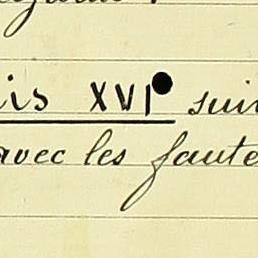 is XVI suiv
avec les faute